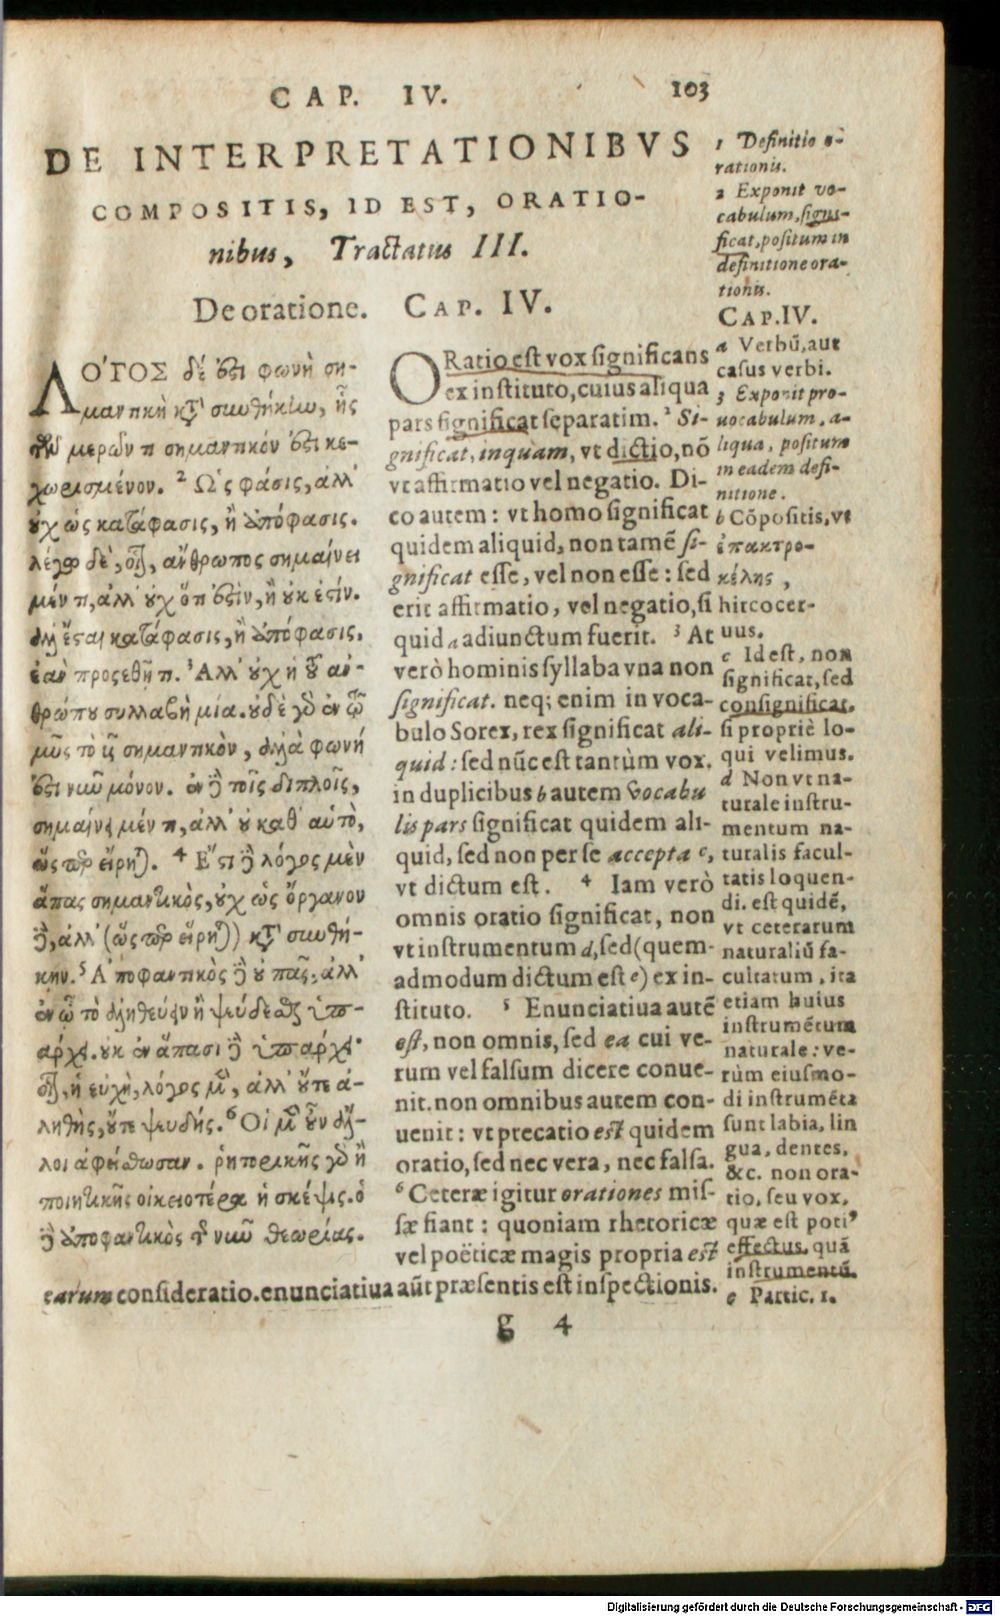 CAP. IV. 103
DE INTERPRETATIONIBVS
COMPOSITIS, ID EST, ORATIO-
nibus, Tractatus III.
De oratione. CAP. IV.
ΛΟ'ΓΟΣ δέ ἐςι φωνὴ ση-
μαντικὴ κατὰ συνθήκην, ἧς
τῶν μερῶν τι σημαντικόν ἐςι κε-
χωρισμένον. ² Ὡς φάσις, ἀλλ'
οὐχ ὡς κατάφασις, ἢ ἀπόφασις.
λέγω δὲ, οἷον, ἄνθρωπος σημαίνει
μέν τι, ἀλλ' οὐχ ὅτι ἐςὶν, ἢ οὐκ ἐςίν.
ἀλλ' ἔςαι κατάφασις, ἢ ἀπόφασις,
ἐὰν προςεθῇ τι. ³ Ἀλλ' οὐχ ἡ τοῦ ἀν-
θρώπου συλλαβὴ μία. οὐδὲ γὰρ ἐν τῷ
μῦς τὸ ῦς σημαντικὸν, ἀλλὰ φωνή
ἐςι νῦν μόνον. ἐν δὲ τοῖς διπλοῖς,
σημαίνει μέν τι, ἀλλ' οὐ καθ' αὑτὸ,
ὥςπερ εἴρηται. ⁴ Ἔςι δὲ λόγος μὲν
ἅπας σημαντικὸς, οὐχ ὡς ὄργανον
δὲ, ἀλλ' (ὥςπερ εἴρηται) κατὰ συνθή-
κην. ⁵ Ἀποφαντικὸς δὲ οὐ πᾶς, ἀλλ'
ἐν ᾧ τὸ ἀληθεύειν ἢ ψεύδεσθαι ὑπ-
άρχει. οὐκ ἐν ἅπασι δὲ ὑπάρχει·
οἷον, ἡ εὐχὴ, λόγος μὲν, ἀλλ' οὔτε ἀ-
ληθὴς, οὔτε ψευδής. ⁶ Οἱ μὲν οὖν ἄλ-
λοι ἀφείσθωσαν. ῥητορικῆς γὰρ ἢ
ποιητικῆς οἰκειοτέρα ἡ σκέψις. ὁ
δὲ ἀποφαντικὸς τῆς νῦν θεωρίας.
ORatio est vox significans
ex instituto, cuius aliqua
pars significat separatim. ² Si-
gnificat, inquàm, vt dictio, nō
vt affirmatio vel negatio. Di-
co autem: vt homo significat
quidem aliquid, non tamē si-
gnificat esse, vel non esse: sed
erit affirmatio, vel negatio, si
quid a adiunctum fuerit. ³ At
verò hominis syllaba vna non
significat. neq; enim in voca-
bulo Sorex, rex significat ali-
quid: sed nūc est tantùm vox.
in duplicibus b autem vocabu
lis pars significat quidem ali-
quid, sed non per se accepta c,
vt dictum est. ⁴ Iam verò
omnis oratio significat, non
vt instrumentum d, sed (quem-
admodum dictum est e) ex in-
stituto. ⁵ Enunciatiua autē
est, non omnis, sed ea cui ve-
rum vel falsum dicere conue-
nit. non omnibus autem con-
uenit: vt precatio est quidem
oratio, sed nec vera, nec falsa.
⁶ Ceteræ igitur orationes mis-
sæ fiant: quoniam rhetoricæ
vel poëticæ magis propria est
earum consideratio. enunciatiua aūt præsentis est inspectionis.
1 Definitio o-
rationis.
2 Exponit vo-
cabulum, signi-
ficat, positum in
definitione ora-
tionis.
CAP. IV.
a Verbū, aut
casus verbi.
3 Exponit pro-
uocabulum, a-
liqua, positum
in eadem defi-
nitione.
b Cōpositis, vt
ἐπακτρο-
κέλης,
hircocer-
uus.
c Id est, non
significat, sed
consignificat,
si propriè lo-
qui velimus.
d Non vt na-
turale instru-
mentum na-
turalis facul-
tatis loquen-
di. est quidē,
vt ceterarum
naturaliū fa-
cultatum, ita
etiam huius
instrumētum
naturale: ve-
rùm eiusmo-
di instrumēta
sunt labia, lin
gua, dentes,
&c. non ora-
tio, seu vox,
quæ est poti'
effectus, quā
instrumentū.
e Partic. 1.
g 4
Digitalisierung gefördert durch die Deutsche Forschungsgemeinschaft - DFG